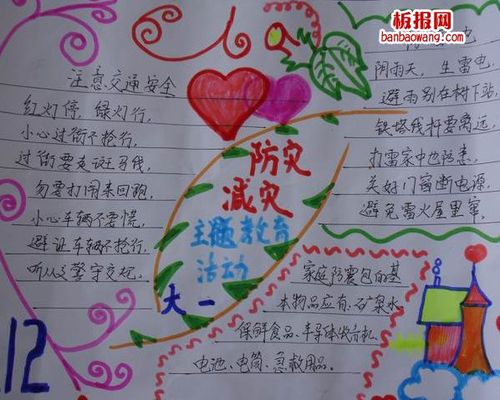 板报网
banbaowang.com
注意交通安全
红灯停,绿灯行,
小心过街不抢行,
过街要走斑马线,
勿要打闹来回跑,
小心车辆不要慌,
避让车辆不抢行,
听从交警守交规,
防灾
减灾
主题教育
活动
大一
阴雨天,生雷电,
避雨别在树下站,
铁塔线杆要离远,
打雷家中也防患,
关好门窗断电源,
避免雷火屋里窜,
家庭防震包的基
本物品应有:矿泉水、
保鲜食品、半导体收音机、
电池、电筒、急救用品。
12